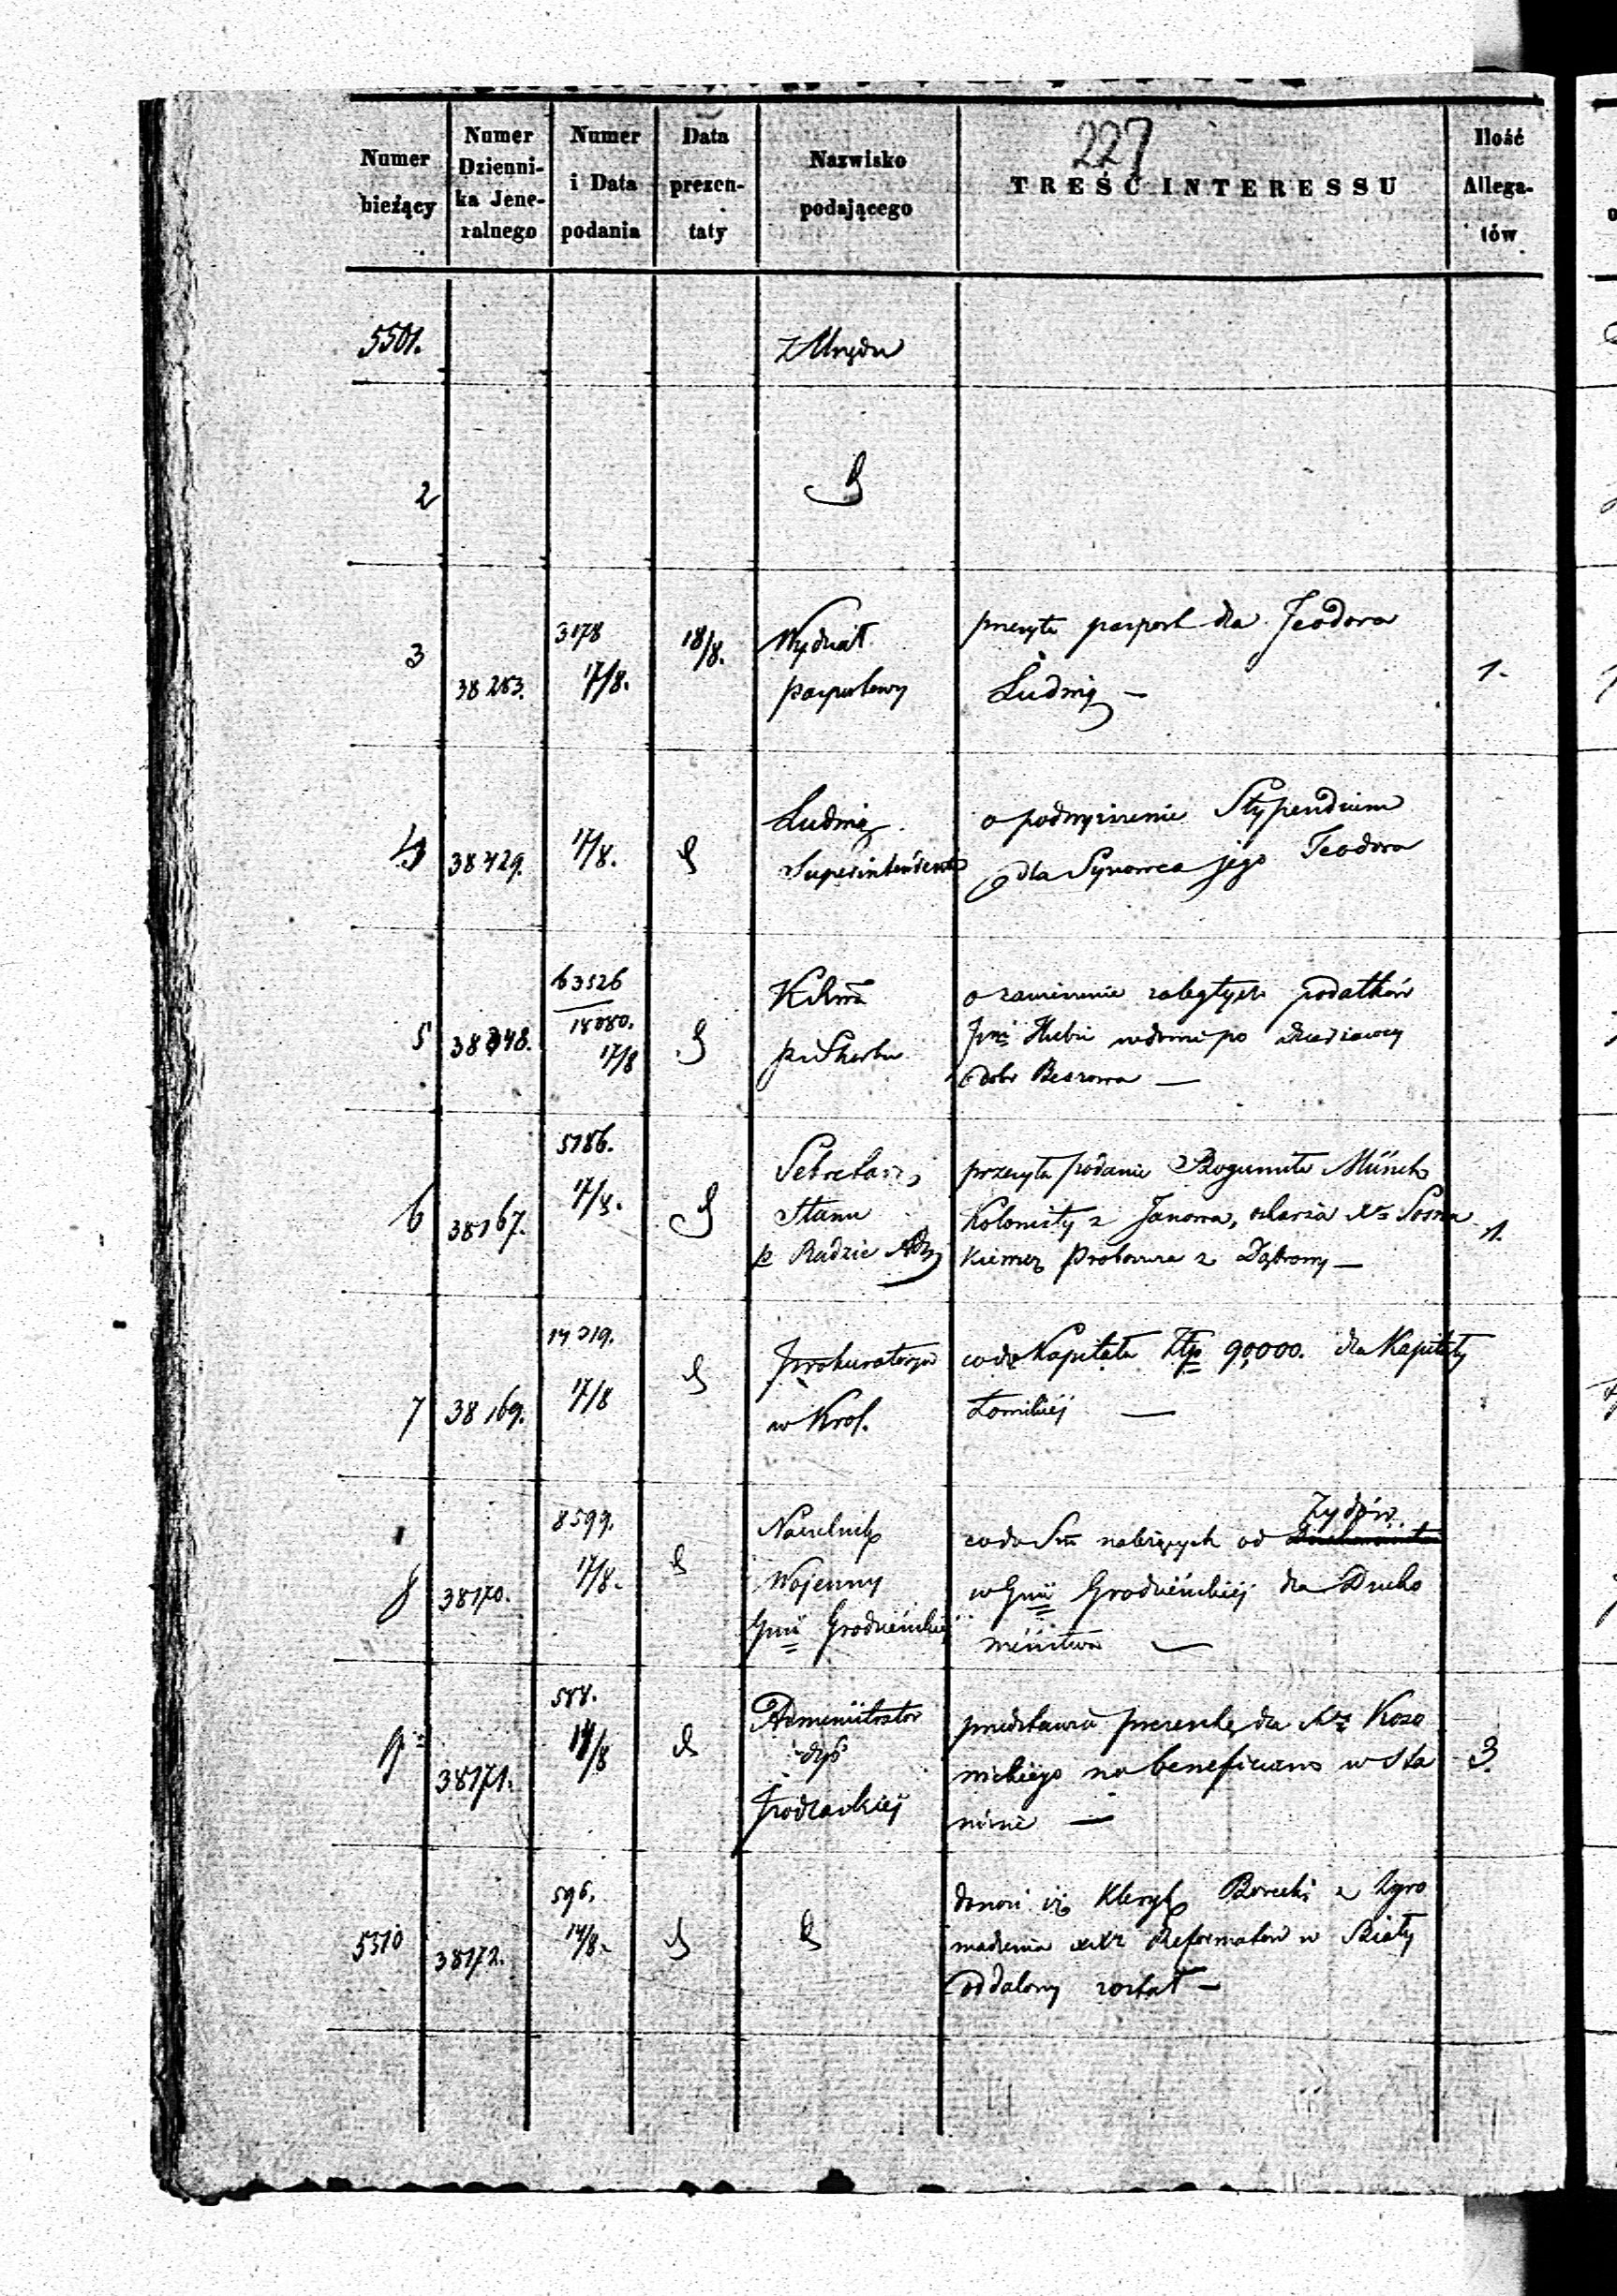 227
Numer bieżący
Numer Dzienni-ka Jene-ralnego
Numer i Data podania
Data prezen-taty
Nazwisko podającego
TREŚĆ INTERESSU
Ilość Allega-tów
5501.
z Urzędu
2
3
38283.
3178
17/8.
18/8.
Wydział
paszportowy
przesyła paszport dla Teodora
Ludwig —
1.
4
38429.
17/8.
Ludwig
Superintendent
o podwyższenie Stypendium
dla Synowca jego Teodora
5
63526
18080.
17/8
p. Skarbu
o zaległych podatków
wdowie po dzierżawcy
dobr
6
38167.
5786.
17/8.
Sekretarz
Stanu
p. Radzie Adm
przesyła podanie Bogumiła Münch
Kolonisty z Janowa,
Proboszcza z Dąbrowy —
1.
7
38169.
17/8
Prokuratorya
w Król.
co do Kapitału Złp 90,000. dla Kapituły
—
8
38170.
8599.
17/8.
Naczelnik
Wojenny
Gnii Grodzieńskiej
co do Sm należących od Żydów
w Gnii Grodzieńskiej dla Ducho
wieństwa —
9
38171.
588.
8
Administrator
dyó
Podlaskiej
przedstawia prezentę dla Xa Koza
nickiego na beneficium w Sła
—
3.
5510
38172.
596.
14/8.
donosi iż Kleryk z Zgro
madzenia XX Reformatów w Biały
oddalony został —